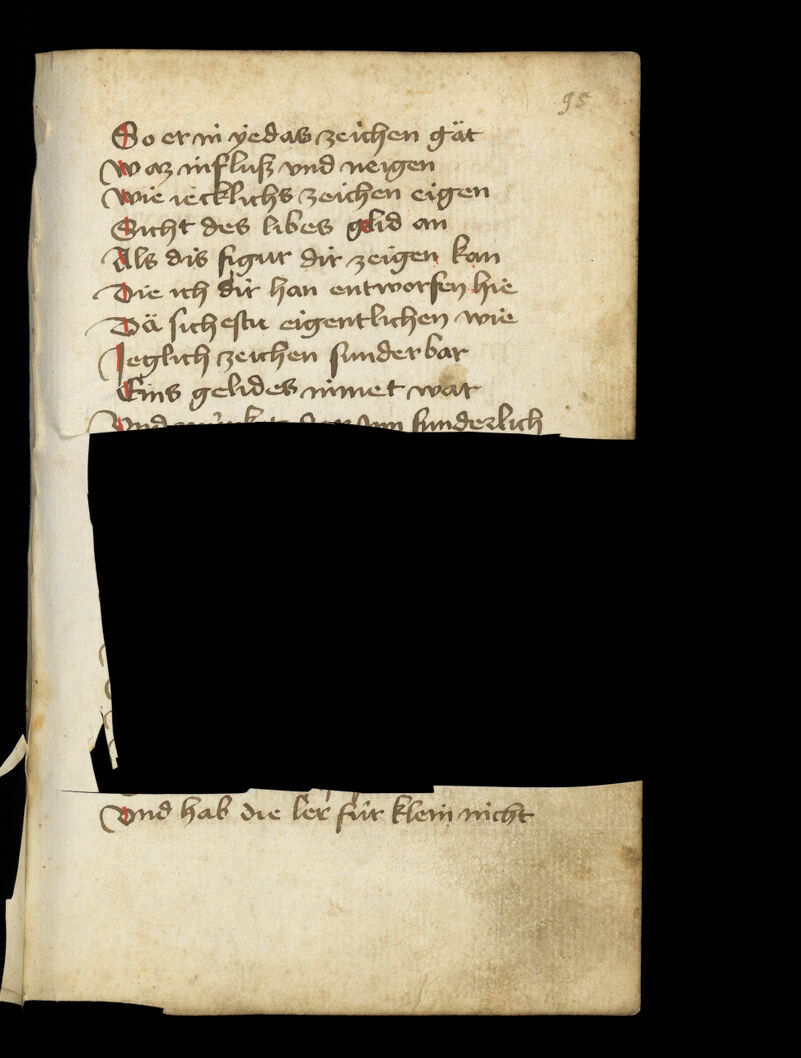 95
So er in yedas zeichen gät
Waz influß vnd neigen
Wie iecklichs zeichen eigen
Sicht des libes gelid an
Als dis figur dir zeigen kan
Die ich dir han entworfen hie
Dä sichestu eigentlichen wie
Jeglich zeichen sunderbar
Eins gelides nimet war
Vnd sunderlich
Vnd hab die ler für klein nicht